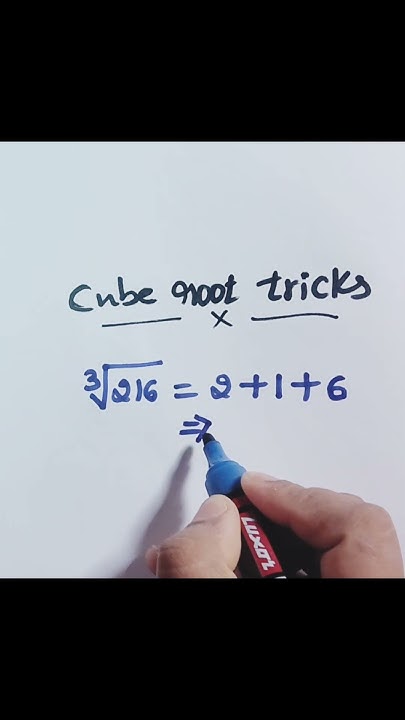 Cube root tricks
x
∛216 = 2+1+6
⇒
LUXOR